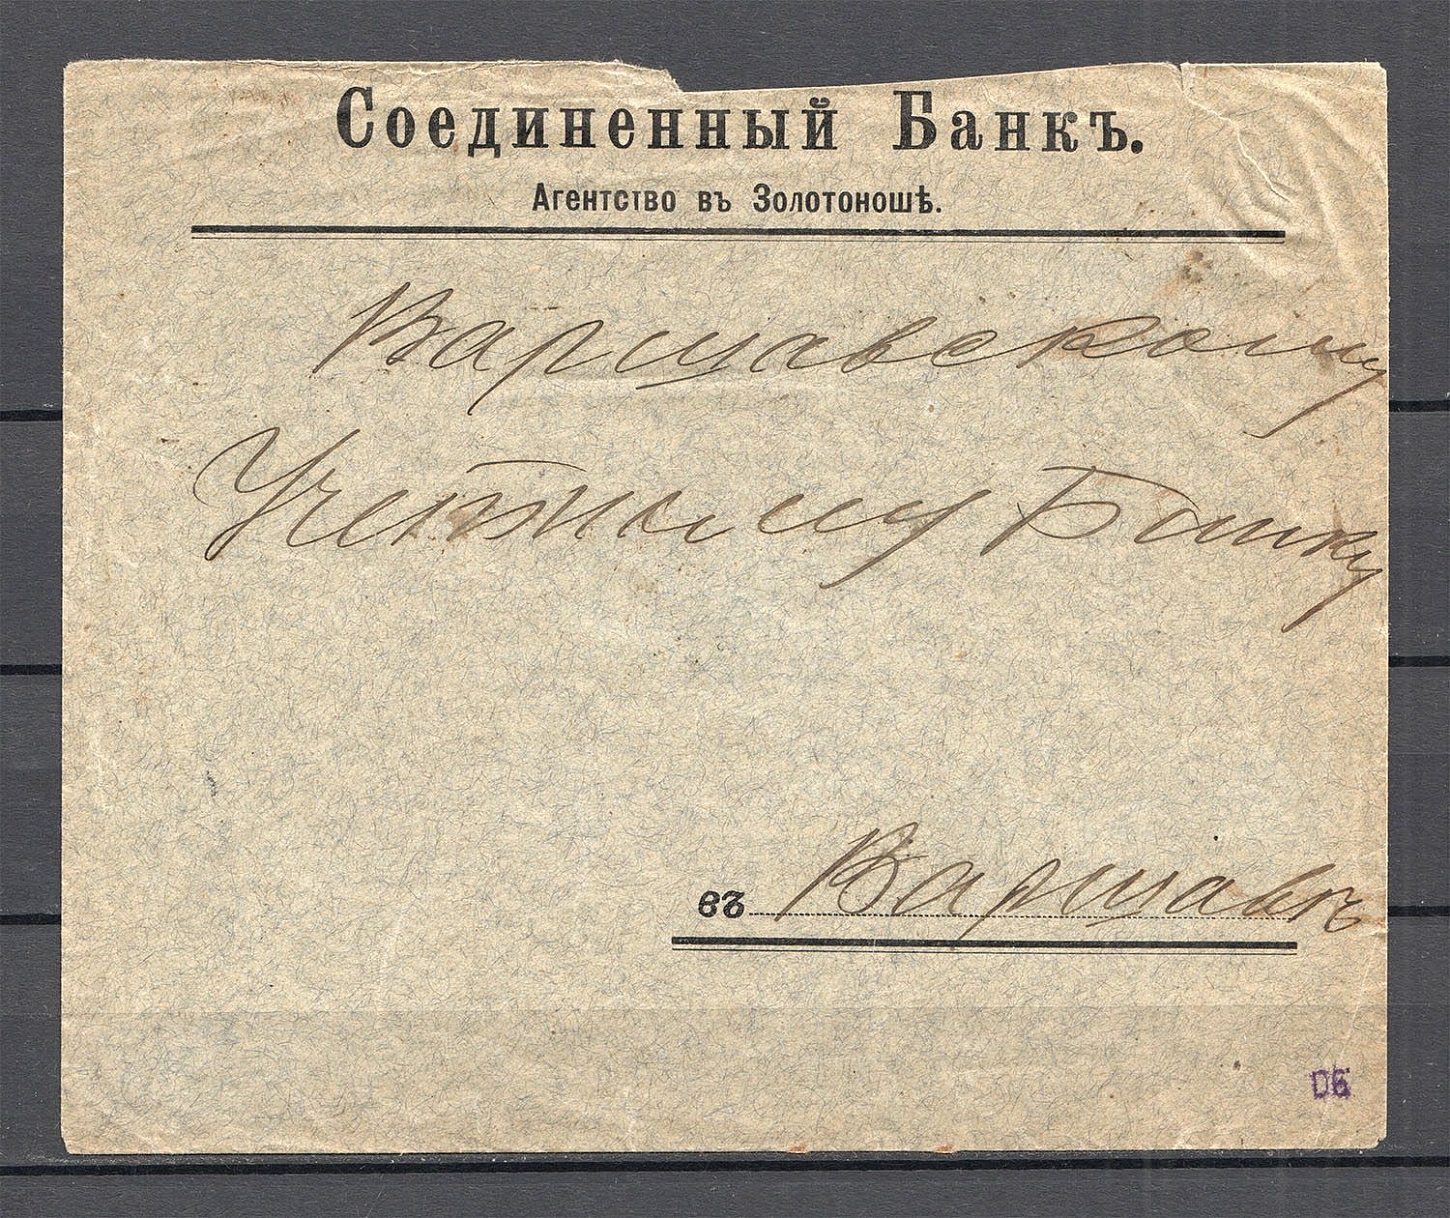 Соединенный Банкъ.
Агентство въ Золотоношѣ.
Варшавскому
Учетному Банку
въ Варшавѣ
DБ